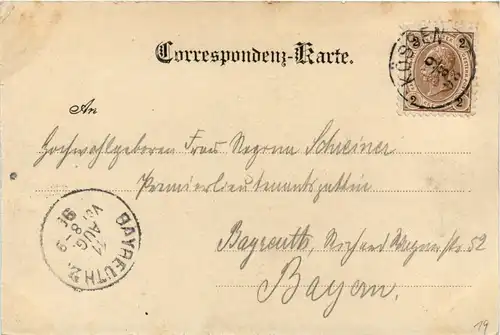 Correspondenz-Karte.
KÖSSEN
2 2
2 2
An
Hochwohlgeboren Frau Regina Schreiner
Premierlieutenantsgattin
Bayreuth, Richard Wagnerstr 52
Bayern.
BAYREUTH 2.
11
AUG.
8-9
19